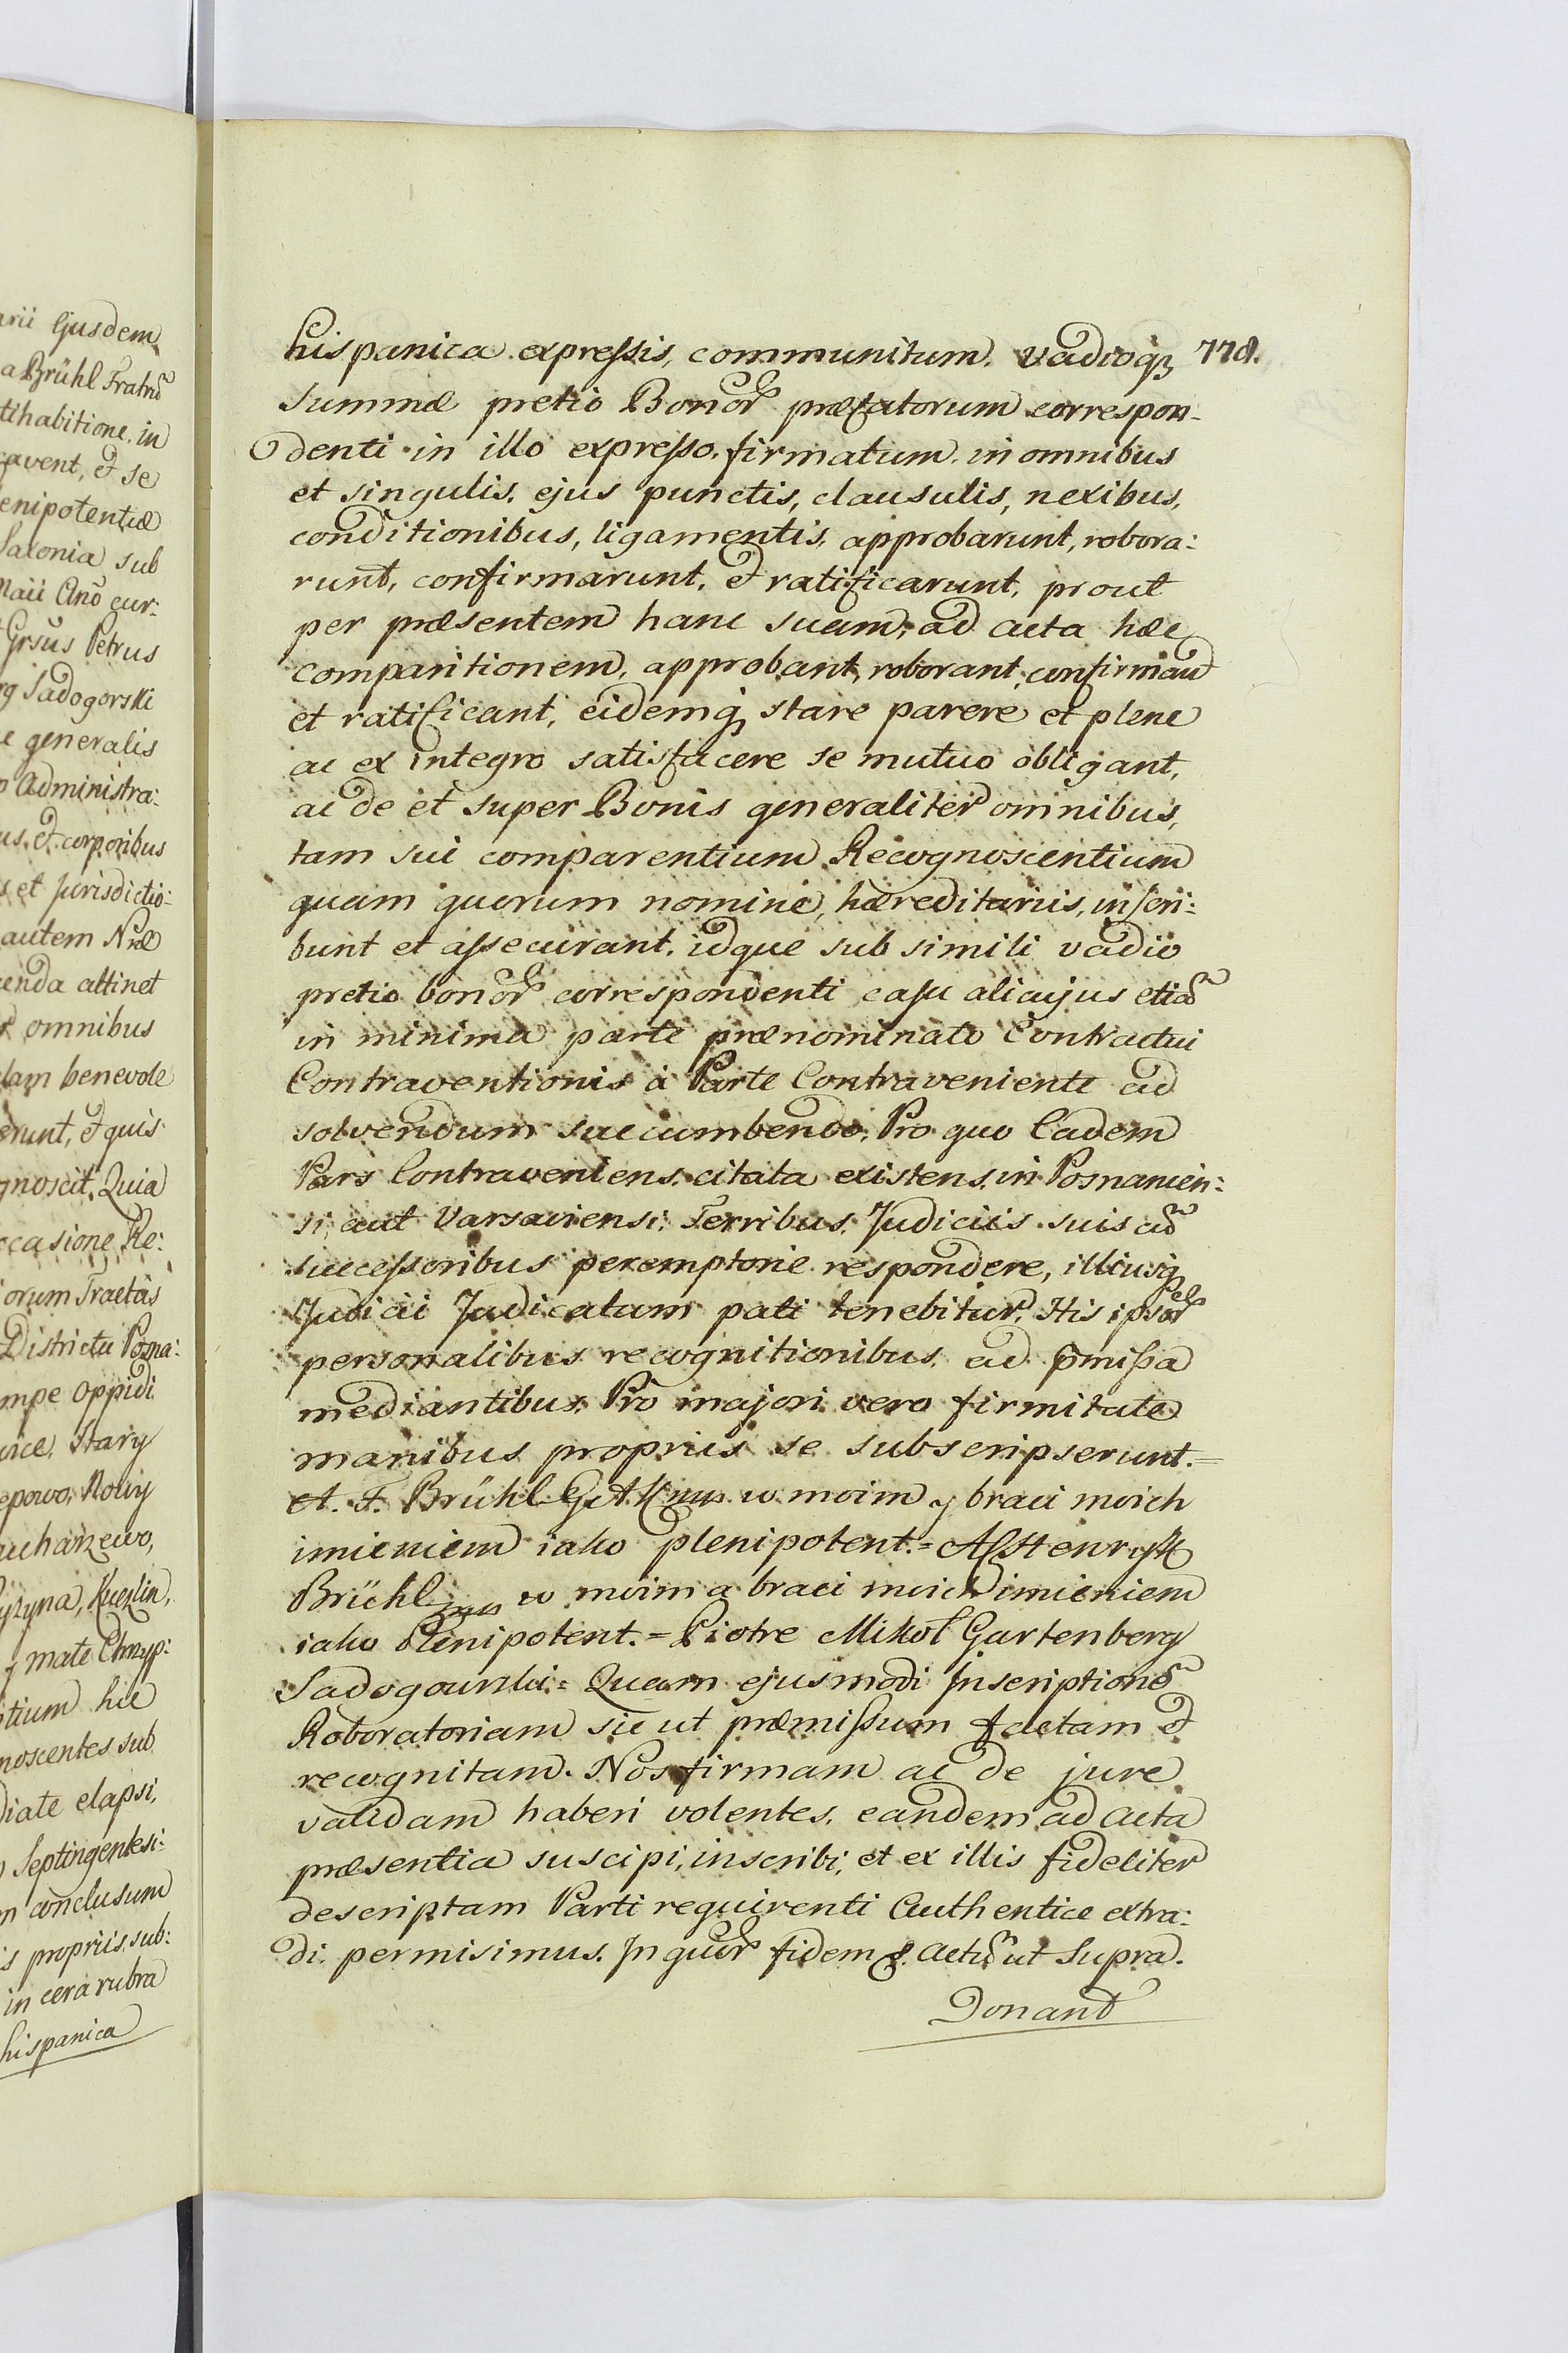 arii Ejusdem
a Brühl Fratrū
tihabitione, in
cavent, et se
enipotentiæ
Saxonia sub
Maii Anō cur:
Grsus Petrus
rg Sadogorski
e generalis
o Administra:
us, et corporibus
s et Jurisdictio:
autem Nræ
enda attinet
omnibus
dam benevole
erunt, et quis
gnoscit, Quia
occasione Re:
iorum Tractûs
Districtu Posna:
mpe Oppidi
ice, Stary
epowo, Nowy
ucharzewo,
yzyna, Kuczlin,
y mate Chrzyp:
tium hic
noscentes sub
diate elapsi,
o Septingentesi:
m conclusum
is propriis sub:
in cera rubra
hispanica
hispanica expressis, communitum, vadioq3 778.
Summæ pretio Bonor præfatorum correspon-
denti in illo expresso, firmatum, in omnibus
et singulis, ejus punctis, clausulis, nexibus,
conditionibus, ligamentis, approbarunt, robora:
runt, confirmarunt, et ratificarunt, prout
per præsentem hanc suam, ad acta hæc
comparitionem, approbant, roborant, confirmant
et ratificant, eidemq3 stare parere et plene
ac ex integro satisfacere se mutuo obligant,
ac de et super Bonis generaliter omnibus,
tam sui comparentium Recognoscentium
quam quorum nomine, hæreditariis, inscri:
bunt et assecurant, idque sub simili vadio
pretio bonor correspondenti casu alicujus etiā
in minima parte prænominato Contractui
Contraventionis à Parte Contraveniente ad
solvendum succumbendo, Pro quo Eadem
Pars Contraveniens, citata existens, in Posnanien:
si, aut Varsaviensi, Terribus, Judiciis suis cū
successoribus peremptorie respondere, illiusq3
Judicii Judicatum pati tenebitur, His ipsor
personalibus recognitionibus, ad p̄missa
mediantibus. Pro majori vero firmitate
manibus propriis se subscripserunt.=
A. F. Brühl w moim y braci moich
imieniem iako plenipotent.=
Brühl mp w moim a braci moich imieniem
iako Plenipotent.= Piotre Mikoł Gartenberg
Sadogourski= Quam ejusmodi Inscriptionē
Roboratoriam sic ut præmissum factam et
recognitam. Nos firmam ac de jure
validam haberi volentes, eandem ad Acta
præsentia suscipi, inscribi, et ex illis fideliter
descriptam Parti requirenti Authentice extra:
di permisimus. In quor fidem &. Actū ut Supra.
Donant